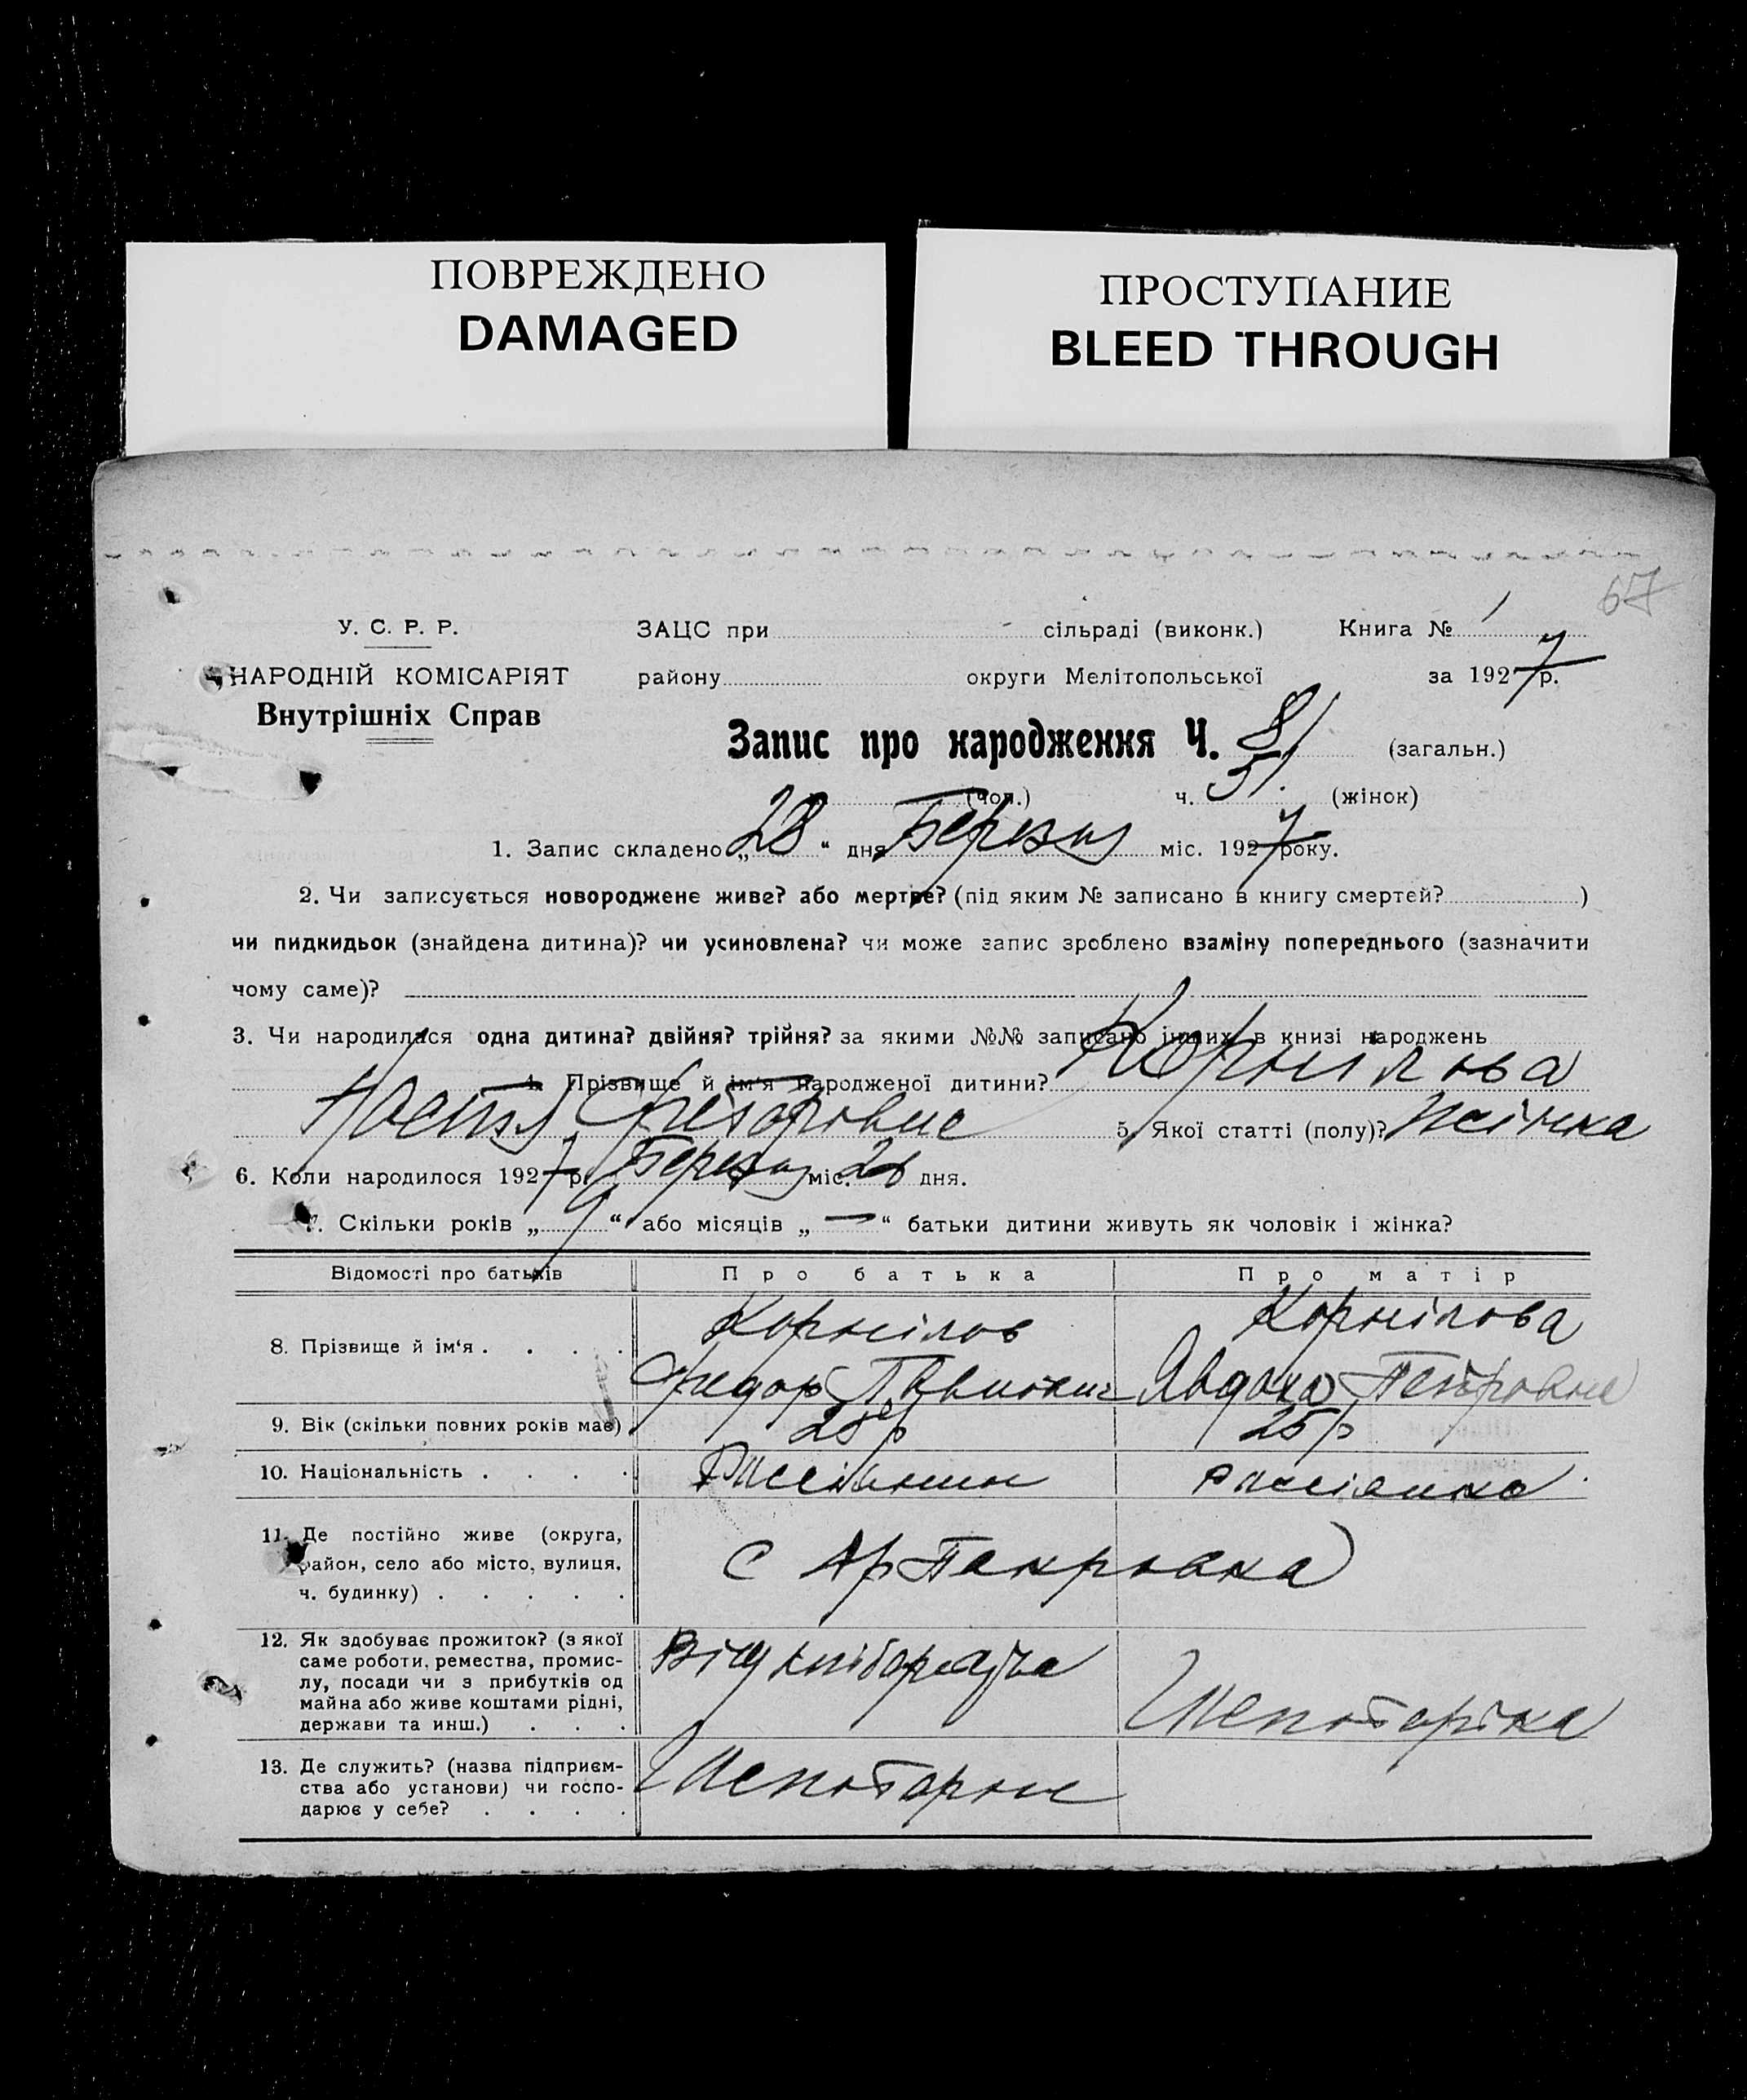 ПОВРЕЖДЕНО
DAMAGED
ПРОСТУПАНИЕ
BLEED THROUGH
67
У. С. Р. Р.
НАРОДНІЙ КОМІСАРІЯТ
Внутрішніх Справ
ЗАЦС при сільраді (виконк.) Книга № 1
району округи Мелітопольської за 1927 р.
Запис про народження Ч. 81 (загальн.)
(чол.) ч. 51. (жінок)
1. Запис складено „28“ дня Березня міс. 1927 року.
2. Чи записується новороджене живе? або мертве? (під яким № записано в книгу смертей? )
чи пидкидьок (знайдена дитина)? чи усиновлена? чи може запис зроблено взаміну попереднього (зазначити
чому саме)?
3. Чи народилася одна дитина? двійня? трійня? за якими №№ записано інших в книзі народжень
4. Прізвище й ім‘я народженої дитини? Корнілова
Настя 5. Якої статті (полу)? Жінка
6. Коли народилося 1927 р. Березня міс. дня.
7. Скільки років „9“ або місяців „—“ батьки дитини живуть як чоловік і жінка?
Відомості про батьків Про батька Про матір
8. Прізвище й ім‘я . . . . Корнілов Корнілова
Федор Явдоха Петровна
9. Вік (скільки повних років має) 25р
10. Національність . . . .
11. Де постійно живе (округа,
район, село або місто, вулиця,
ч. будинку) . . . . . с Покровка
12. Як здобуває прожиток? (з якої
саме роботи, ремества, промис-
лу, посади чи з прибутків од
майна або живе коштами рідні,
держави та инш.) . . .
13. Де служить? (назва підприєм-
ства або установи) чи госпо-
дарює у себе? . . . .